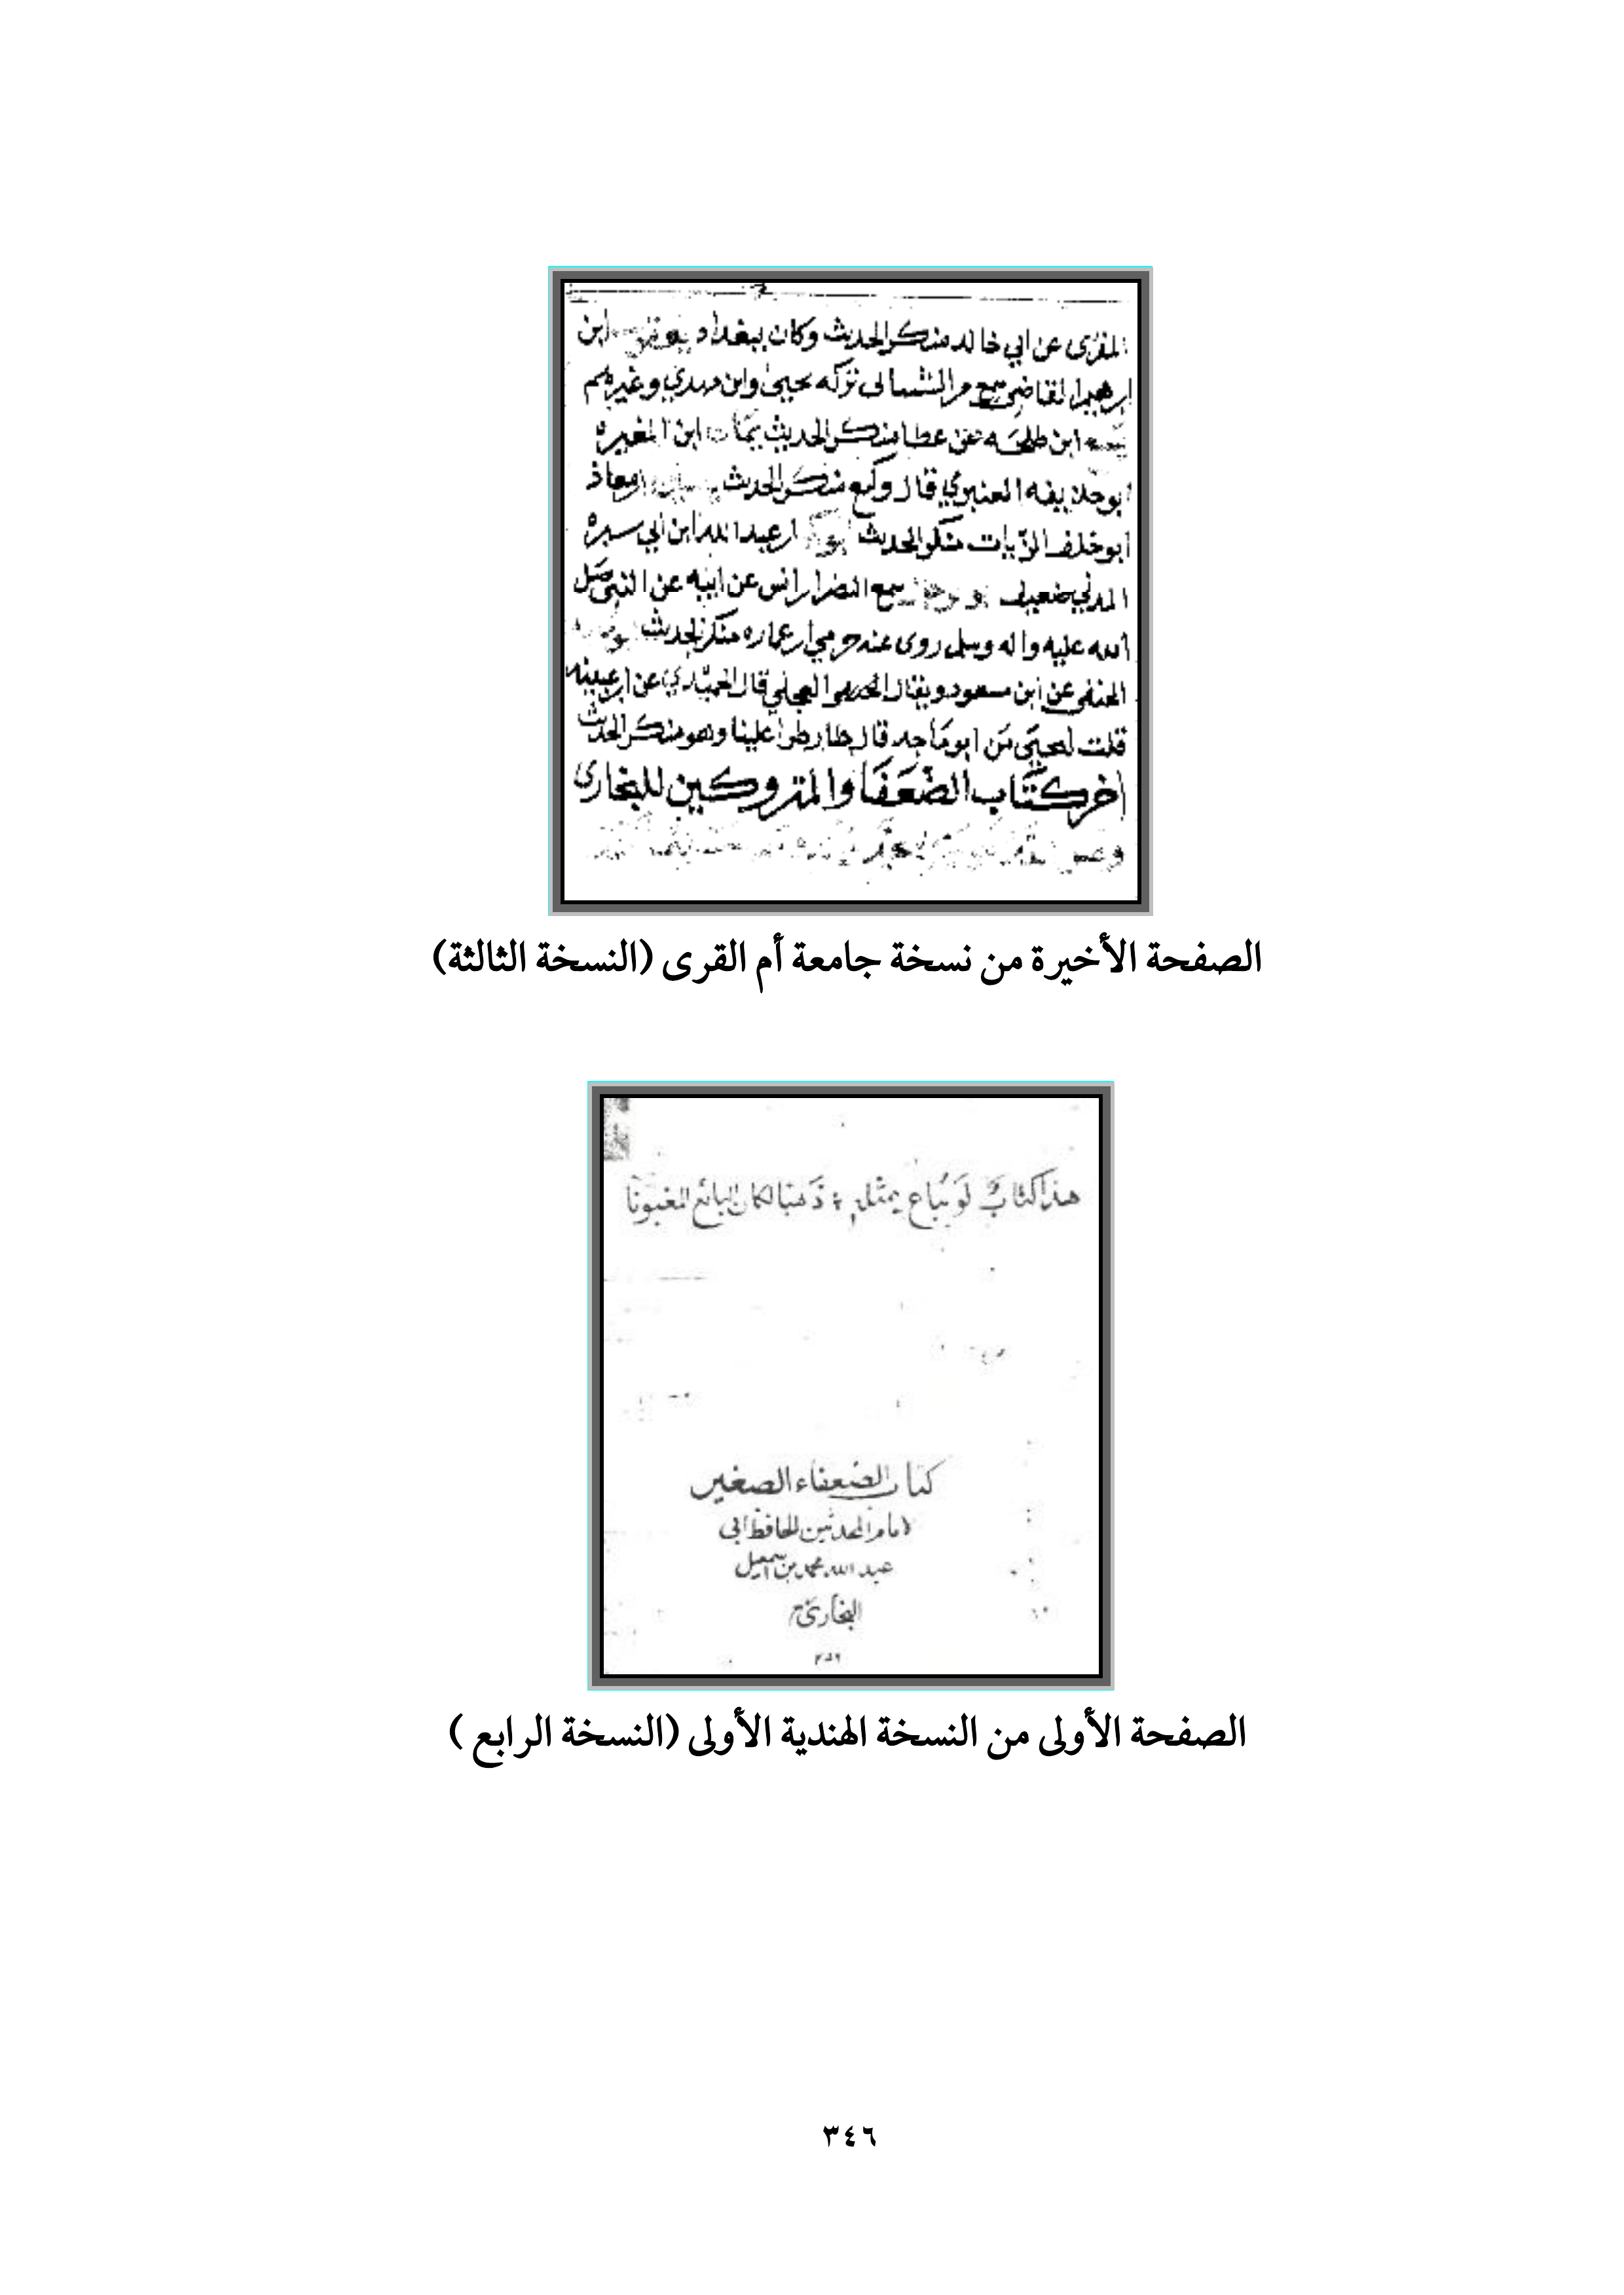 المقرى عن ابي خالد منكر الحديث وكان ببغداد ابن
القاضي سمع تركه يحيى وابن مهدي وغيرهم
ابن طلحه عن عطا منكر الحديث ابن المغيره
العنبري قال وكيع منكر الحديث معاذ
ابو خلف الزيات منكر الحديث عبد الله ابن ابي سبره
المدني ضعيف سمع النضر ابن انس عن ابيه عن النبي صلى
الله عليه واله وسلم روى عنه حرمي ابن عماره منكر الحديث
الحنفي عن ابن مسعود ويقال العجلي قال الحميدي عن ابن عيينه
قلت ليحيى من ابو ماجد قال طار طرا علينا وهو منكر الحديث
اخر كتاب الضعفا والمتروكين للبخارى
الصفحة الأخيرة من نسخة جامعة أم القرى (النسخة الثالثة)
هذا كتابٌ لَو يُباع بمثله ذَهَبًا لكان البائع المغبونا
كتاب الضعفاء الصغير
لامام المحدثين الحافظ ابى
عبد الله محمد بن اسمعيل
البخارى
٢٥٦
الصفحة الأولى من النسخة الهندية الأولى (النسخة الرابع )
٣٤٦